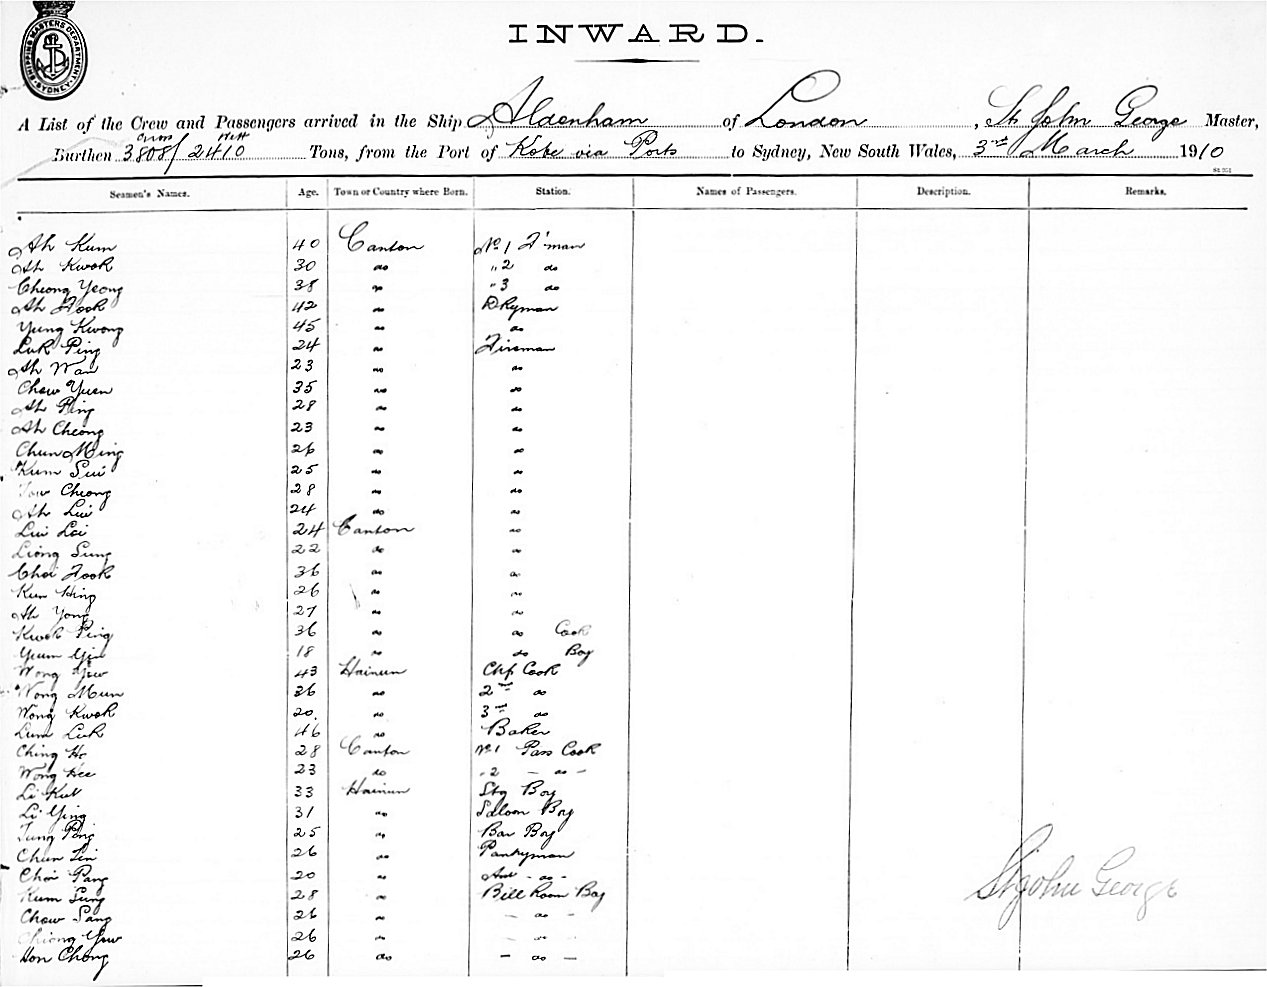 SHIPPING MASTERS DEPARTMENT SYDNEY
INWARD.
A List of the Crew and Passengers arrived in the Ship Aldenham of London, St John George Master,
Gross Nett
Burthen 3808/2410 Tons, from the Port of Kobe via Ports to Sydney, New South Wales, 3rd March 1910
Seamen's Names. Age. Town or Country where Born. Station. Names of Passengers. Description. Remarks.
Ah Kum 40 Canton No 1 F'man
Ah Kwok 30 do "2 do
Cheong Yeong 38 do "3 do
Ah Fook 42 do Dkyman
Yung Kwong 45 do do
Luk Ping 24 do Fireman
Ah Wan 23 do do
Chow Yuen 35 do do
Ah Ping 28 do do
Ah Cheong 23 do do
Chun Ming 26 do do
Kum Sui 25 do do
Cheong 28 do do
Ah Lui 24 do do
Lui Loi 24 Canton do
Leong Sung 22 do do
Choi Fook 36 do do
Kun Hing 26 do do
Ah Yong 27 do do
Kwok Ping 36 do do Cook
Yuen 18 do do Boy
Wong Yew 43 Hainun Chf Cook
Wong Mun 36 do 2nd do
Wong Kwok 20. do 3rd do
Lum Luk 46 do Baker
Ching Ho 28 Canton No 1 Pass Cook
Wong Hee 23 do "2 - do -
Li Kut 33 Hainun Stg Boy
Li Ying 31 do Saloon Boy
Tung Peng 25 do Bar Boy
Chun Lin 26 do Pantryman
Choi Pang 20 do Asst - do -
Kum Sung 28 do Bill Room Boy
Chow Sang 26 do - do -
Yew 26 do - do -
Hon Chong 26 do - do -
St John George